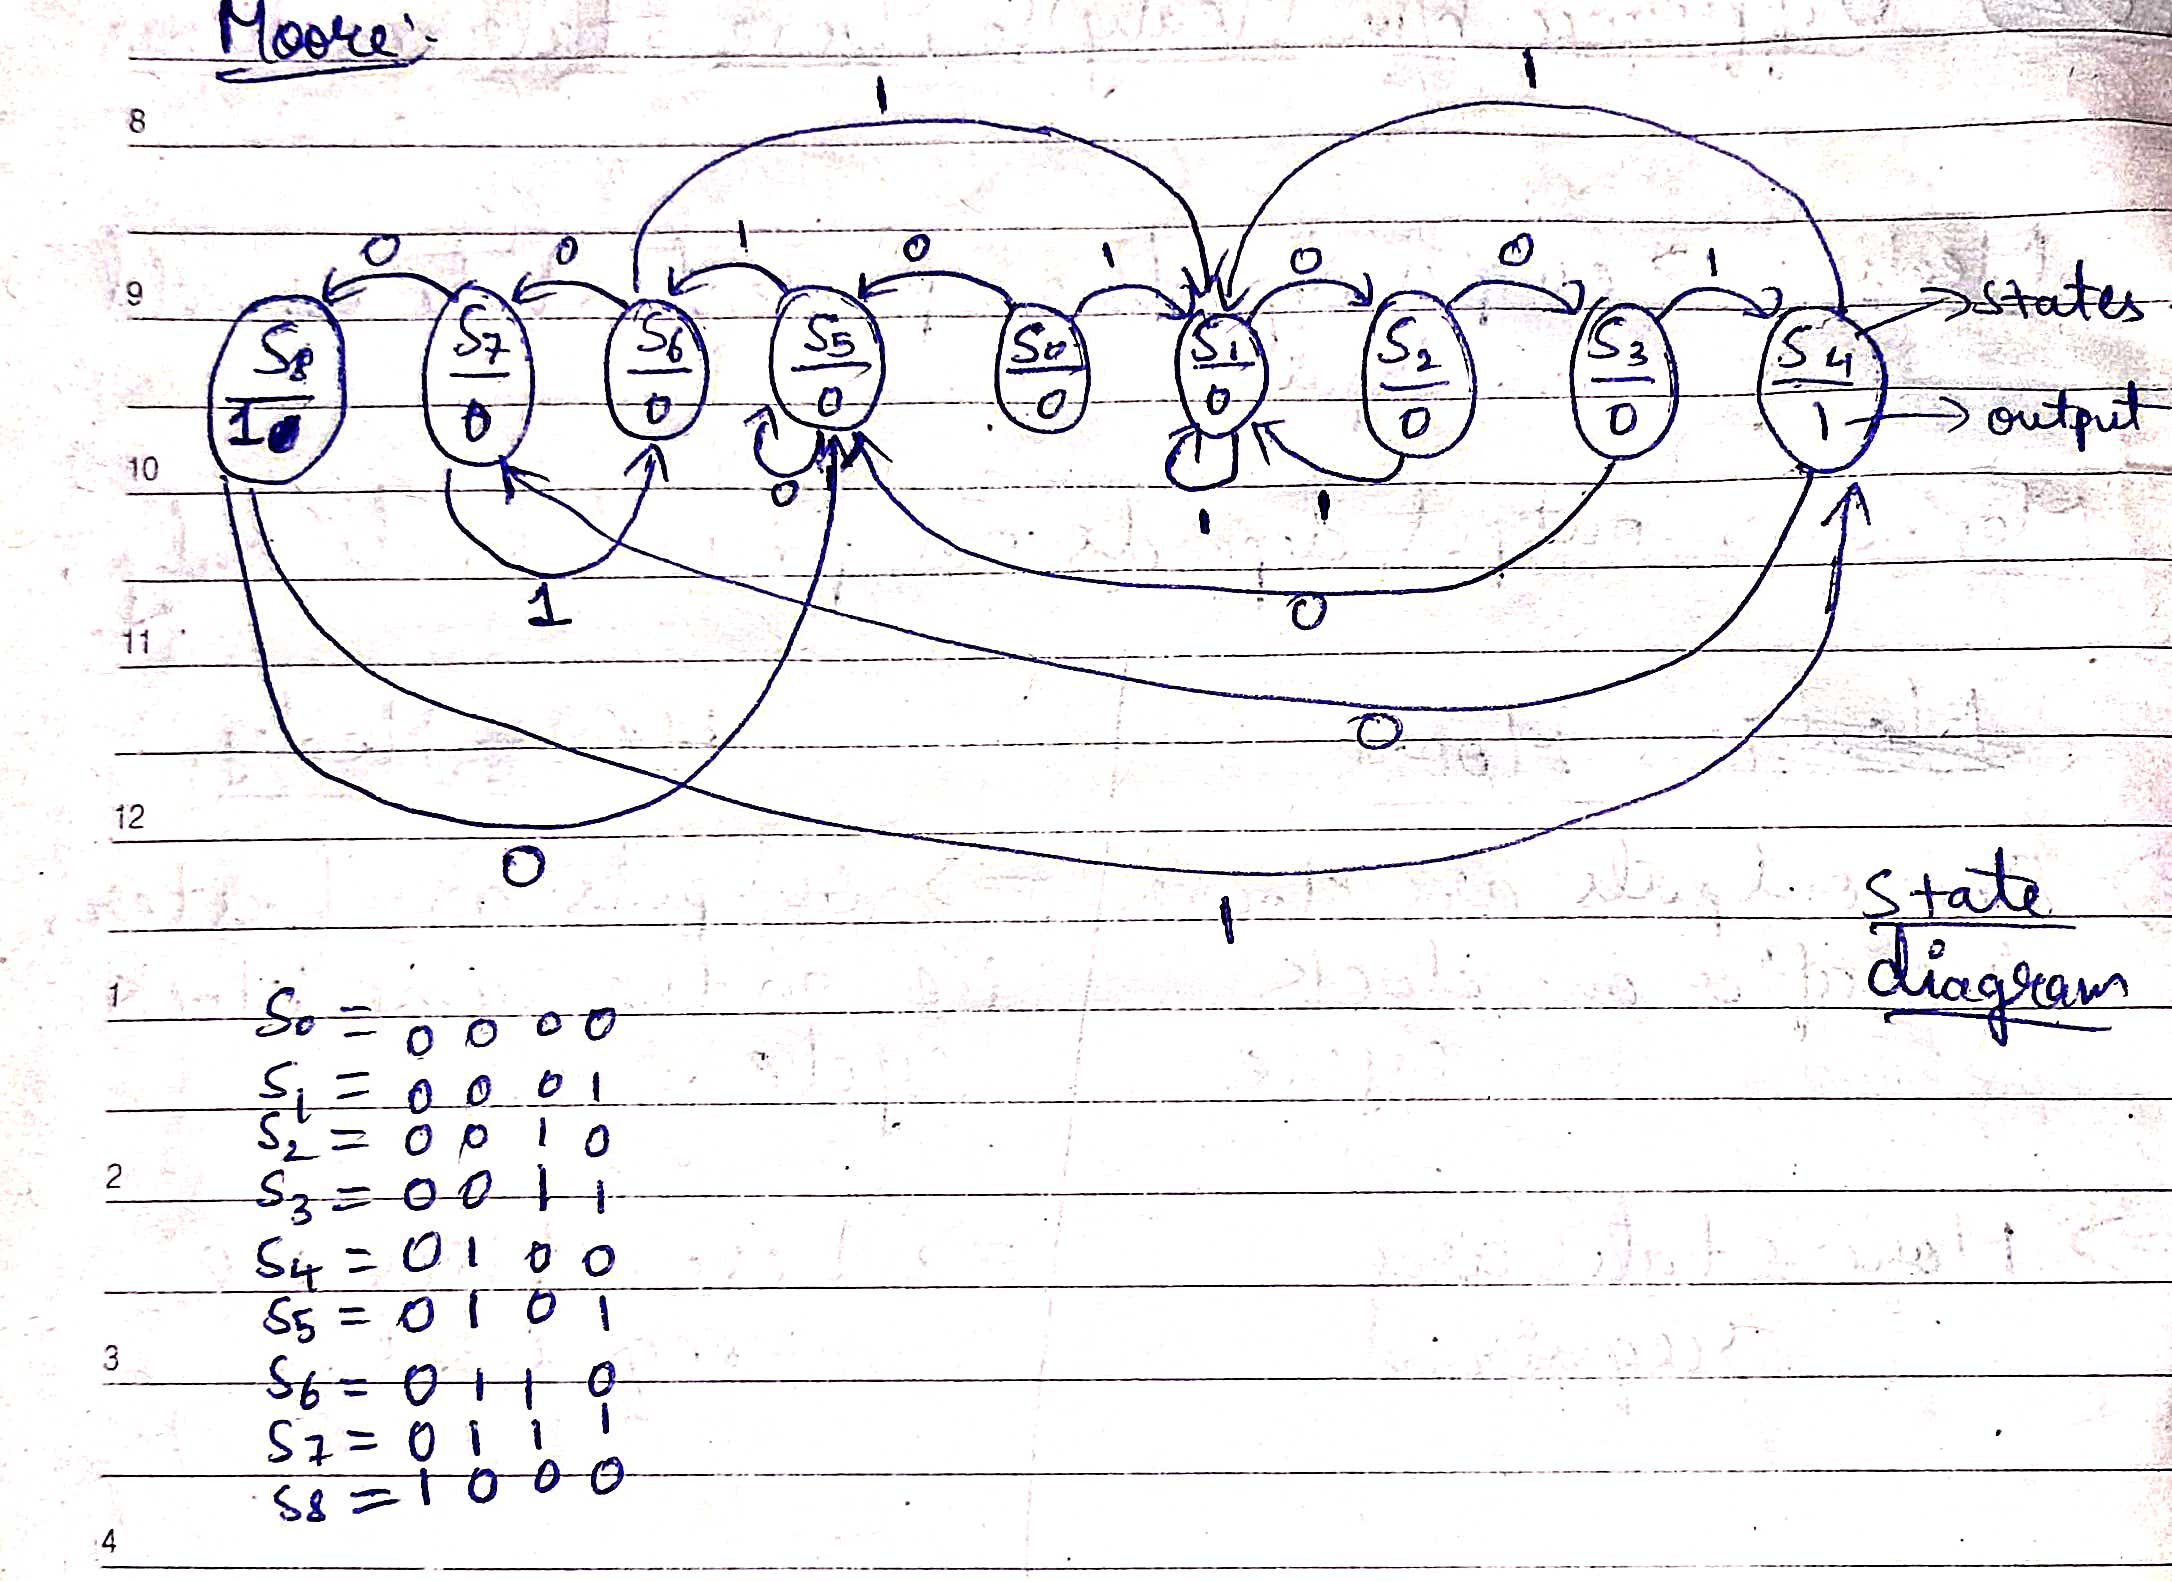 Moore:-
1 1
8
0 0 1 0 1 0 0 1
9
S8 S7 S6 S5 S0 S1 S2 S3 S4 → states
1 0 0 0 0 0 0 0 1 → output
10
0 1 1
1 0
11
0
12
0
1
State
diagram
1
S0 = 0 0 0 0
S1 = 0 0 0 1
S2 = 0 0 1 0
2
S3 = 0 0 1 1
S4 = 0 1 0 0
S5 = 0 1 0 1
3
S6 = 0 1 1 0
S7 = 0 1 1 1
S8 = 1 0 0 0
4